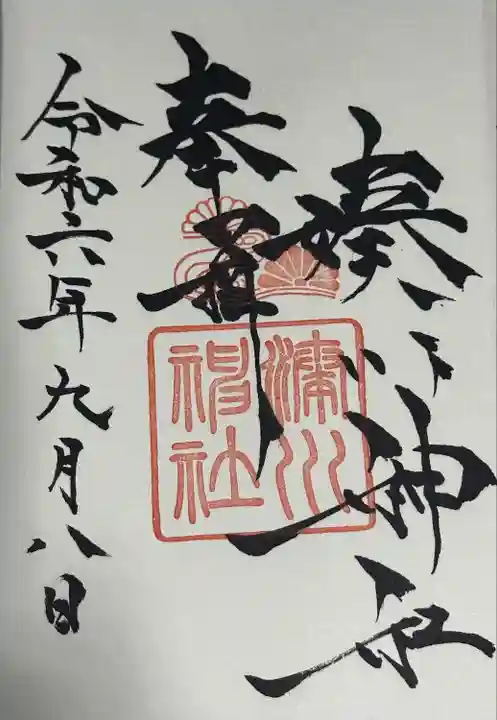 湊川神社
奉拝
湊川
神社
令和六年九月八日